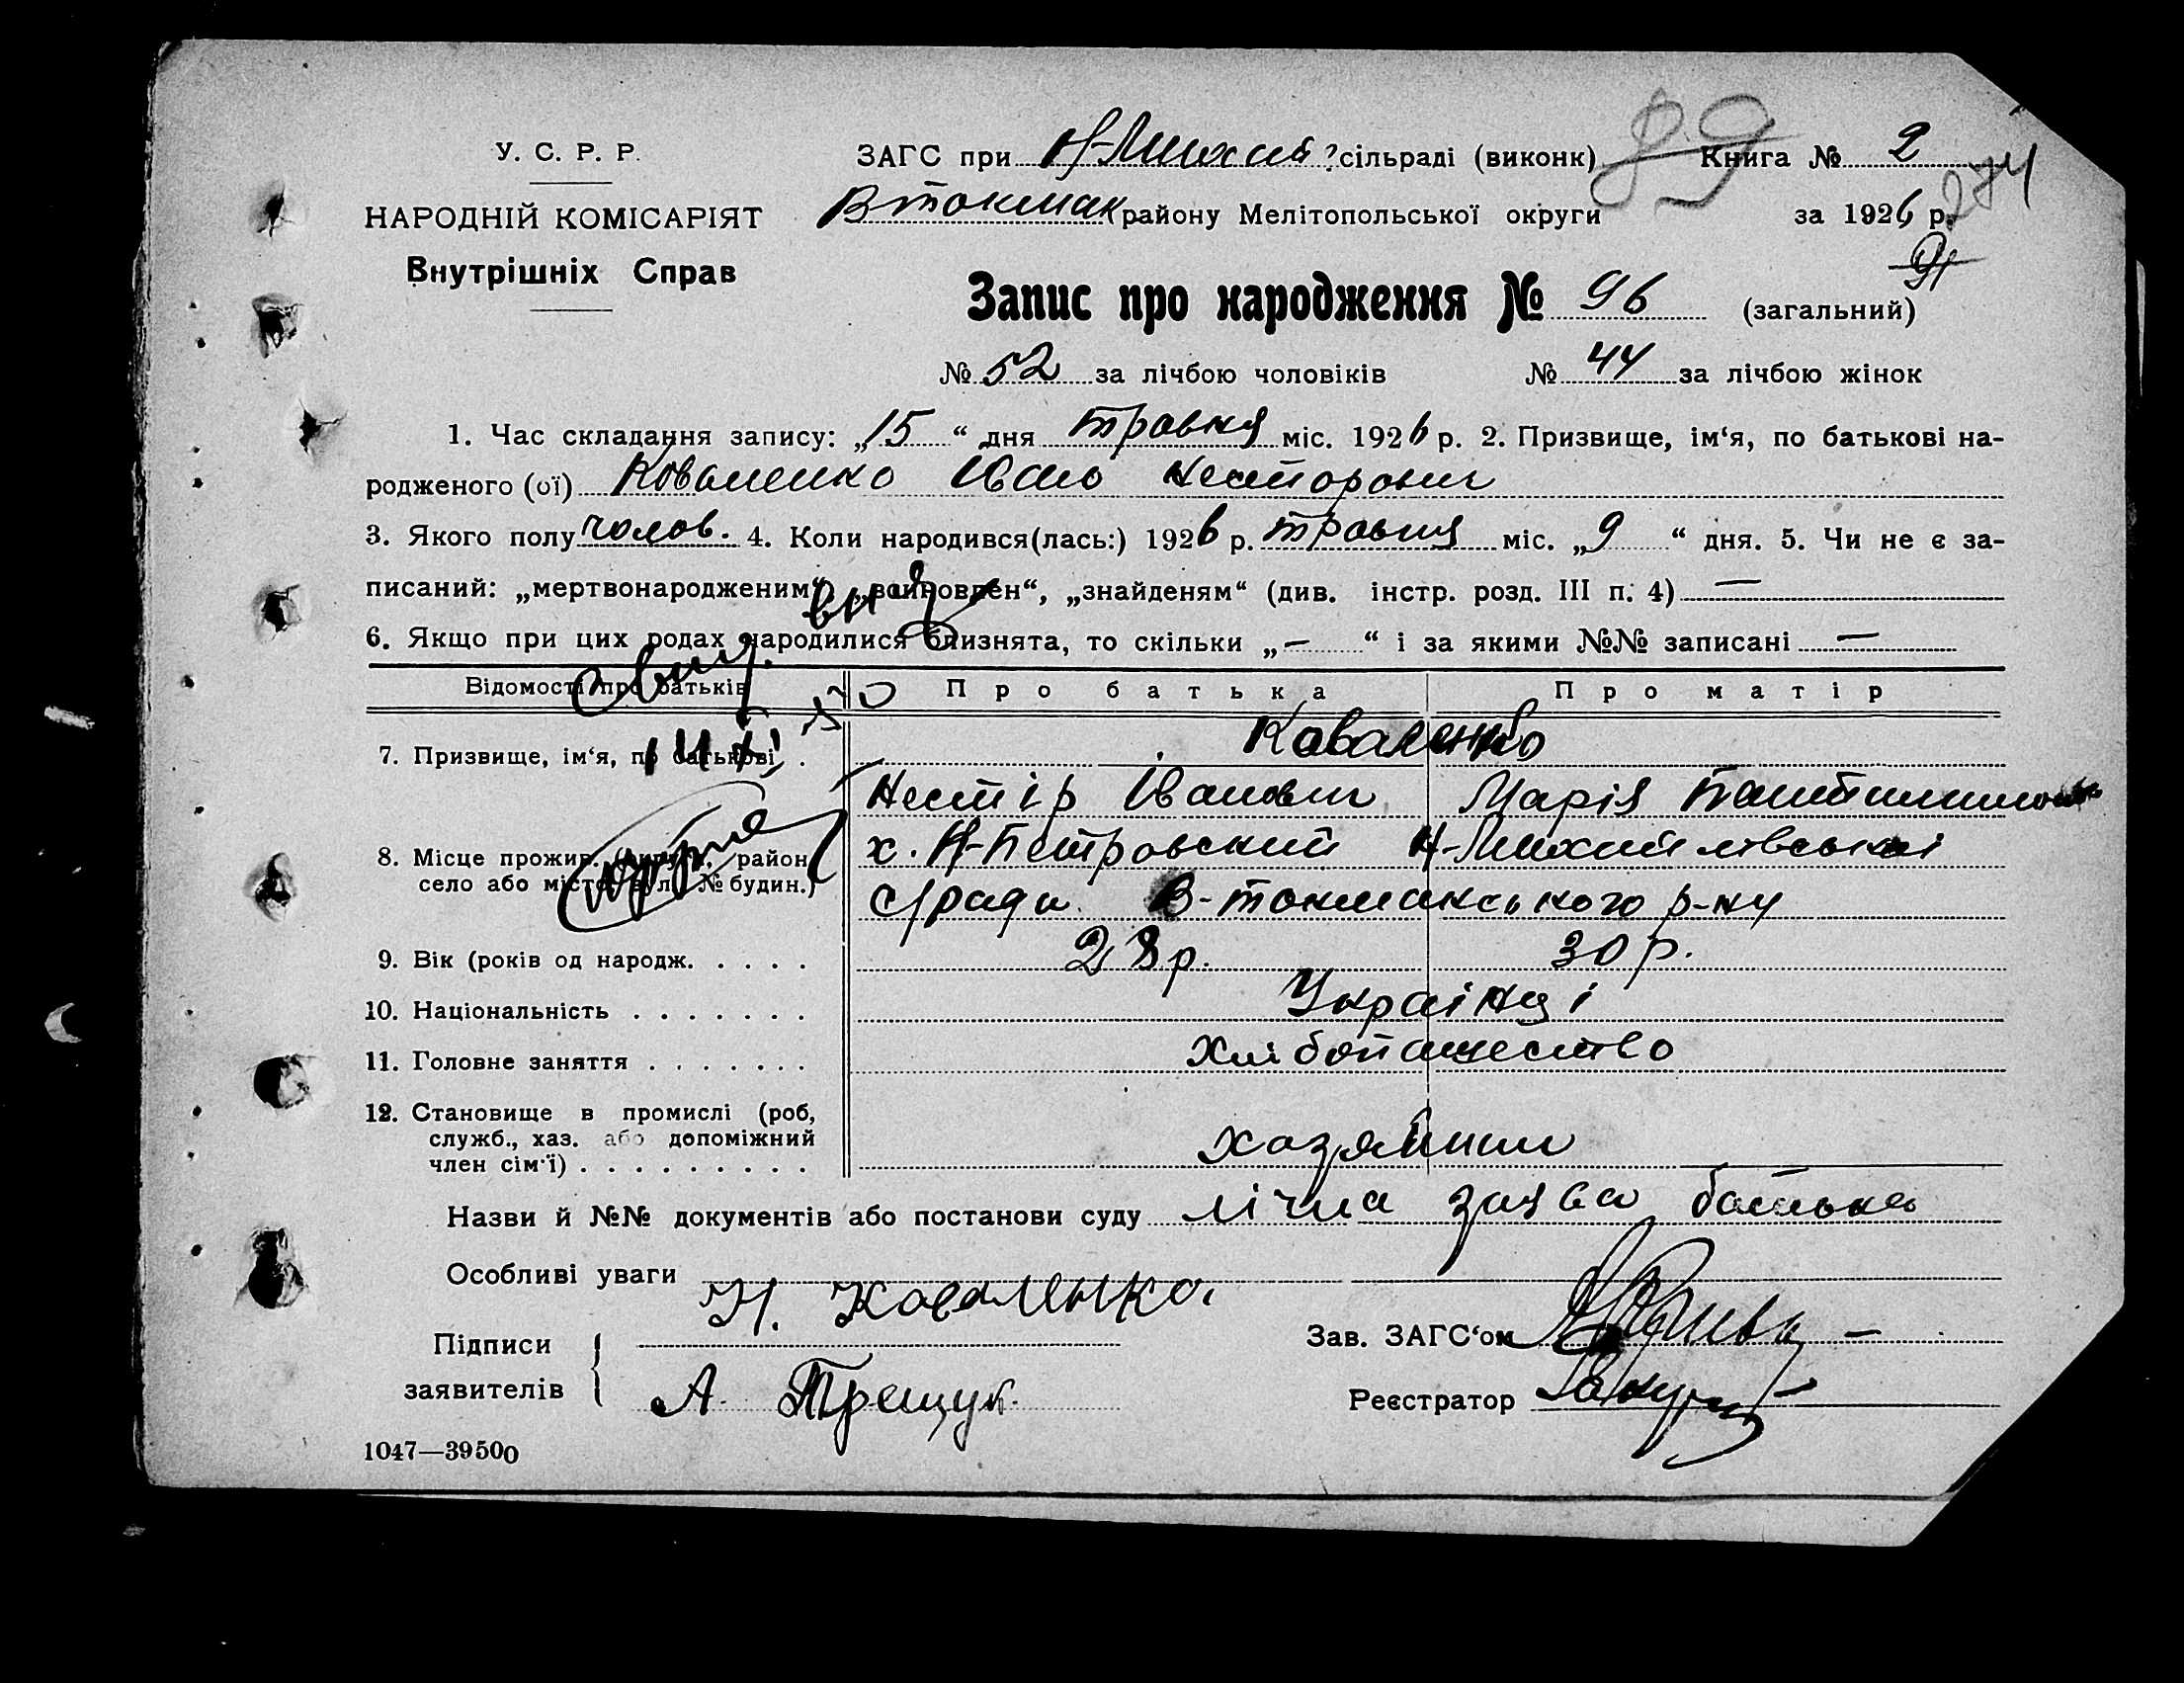 У. С. Р. Р.
НАРОДНІЙ КОМІСАРІЯТ
Внутрішніх Справ
ЗАГС при Н-Михай сільраді (виконк) Книга № 2
274
В токмак району Мелітопольської округи за 1926 р.
91
Запис про народження № 96 (загальний)
№ 52 за лічбою чоловіків № 44 за лічбою жінок
1. Час складання запису: „15“ дня травня міс. 1926 р. 2. Призвище, ім‘я, по батькові на-
родженого (ої) Коваленко Іван Несторович
3. Якого полу чолов. 4. Коли народився(лась:) 1926 р. травня міс. „9“ дня. 5. Чи не є за-
писаний: „мертвонародженим“, „войновлен“, „знайденям“ (див. інстр. розд. III п. 4) —
6. Якщо при цих родах народилися близнята, то скільки „—“ і за якими №№ записані —
Відомості про батьків Про батька Про матір
7. Призвище, ім‘я, по батькові . Коваленко
Нестір Іванович Марія
8. Місце прожив. район, х. Н-Петровский Н-Михайлівської
село або місто, вул. № будин.) с/ради В-токмакського р-ну
9. Вік (років од народж. . . . . 28 р. 30 р.
10. Національність . . . . . . . Українці
11. Головне заняття . . . . . . . Хлібопашество
12. Становище в промислі (роб,
служб., хаз. або допоміжний
член сім‘ї) . . . . . . . . . хазяїни
Назви й №№ документів або постанови суду лічна заява батька
Особливі уваги
Підписи
заявителів
Н. Коваленко.
А. Трещук.
Зав. ЗАГС‘ом
Реєстратор
1047—39500